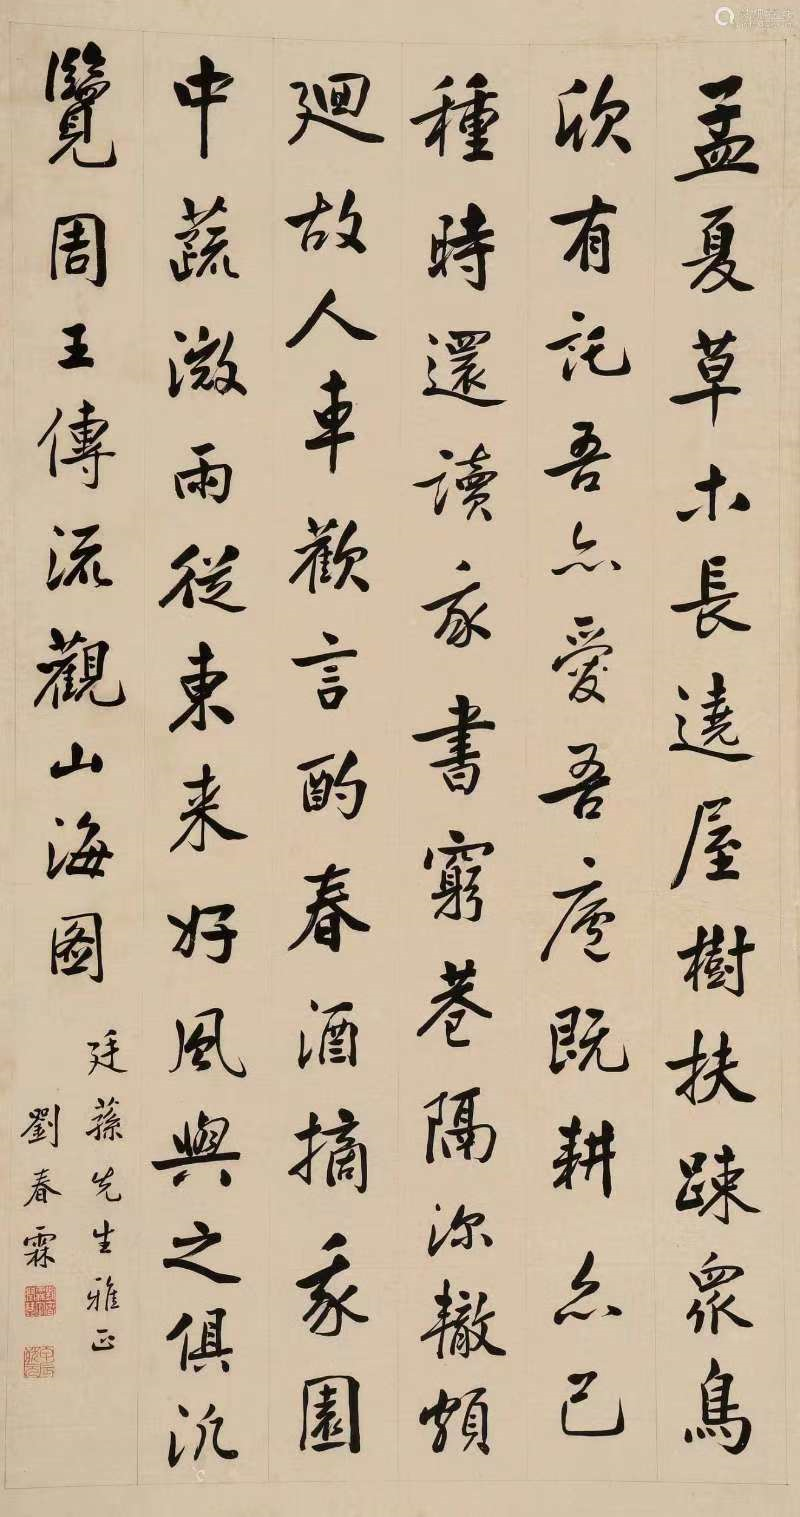 孟夏草木長遶屋樹扶踈眾鳥
欣有託吾亦愛吾廬既耕亦已
種時還讀我書窮巷隔深轍頗
廻故人車歡言酌春酒摘我園
中蔬微雨從東来好風與之俱汎
覽周王傳流觀山海圖
廷蓀先生雅正
劉春霖